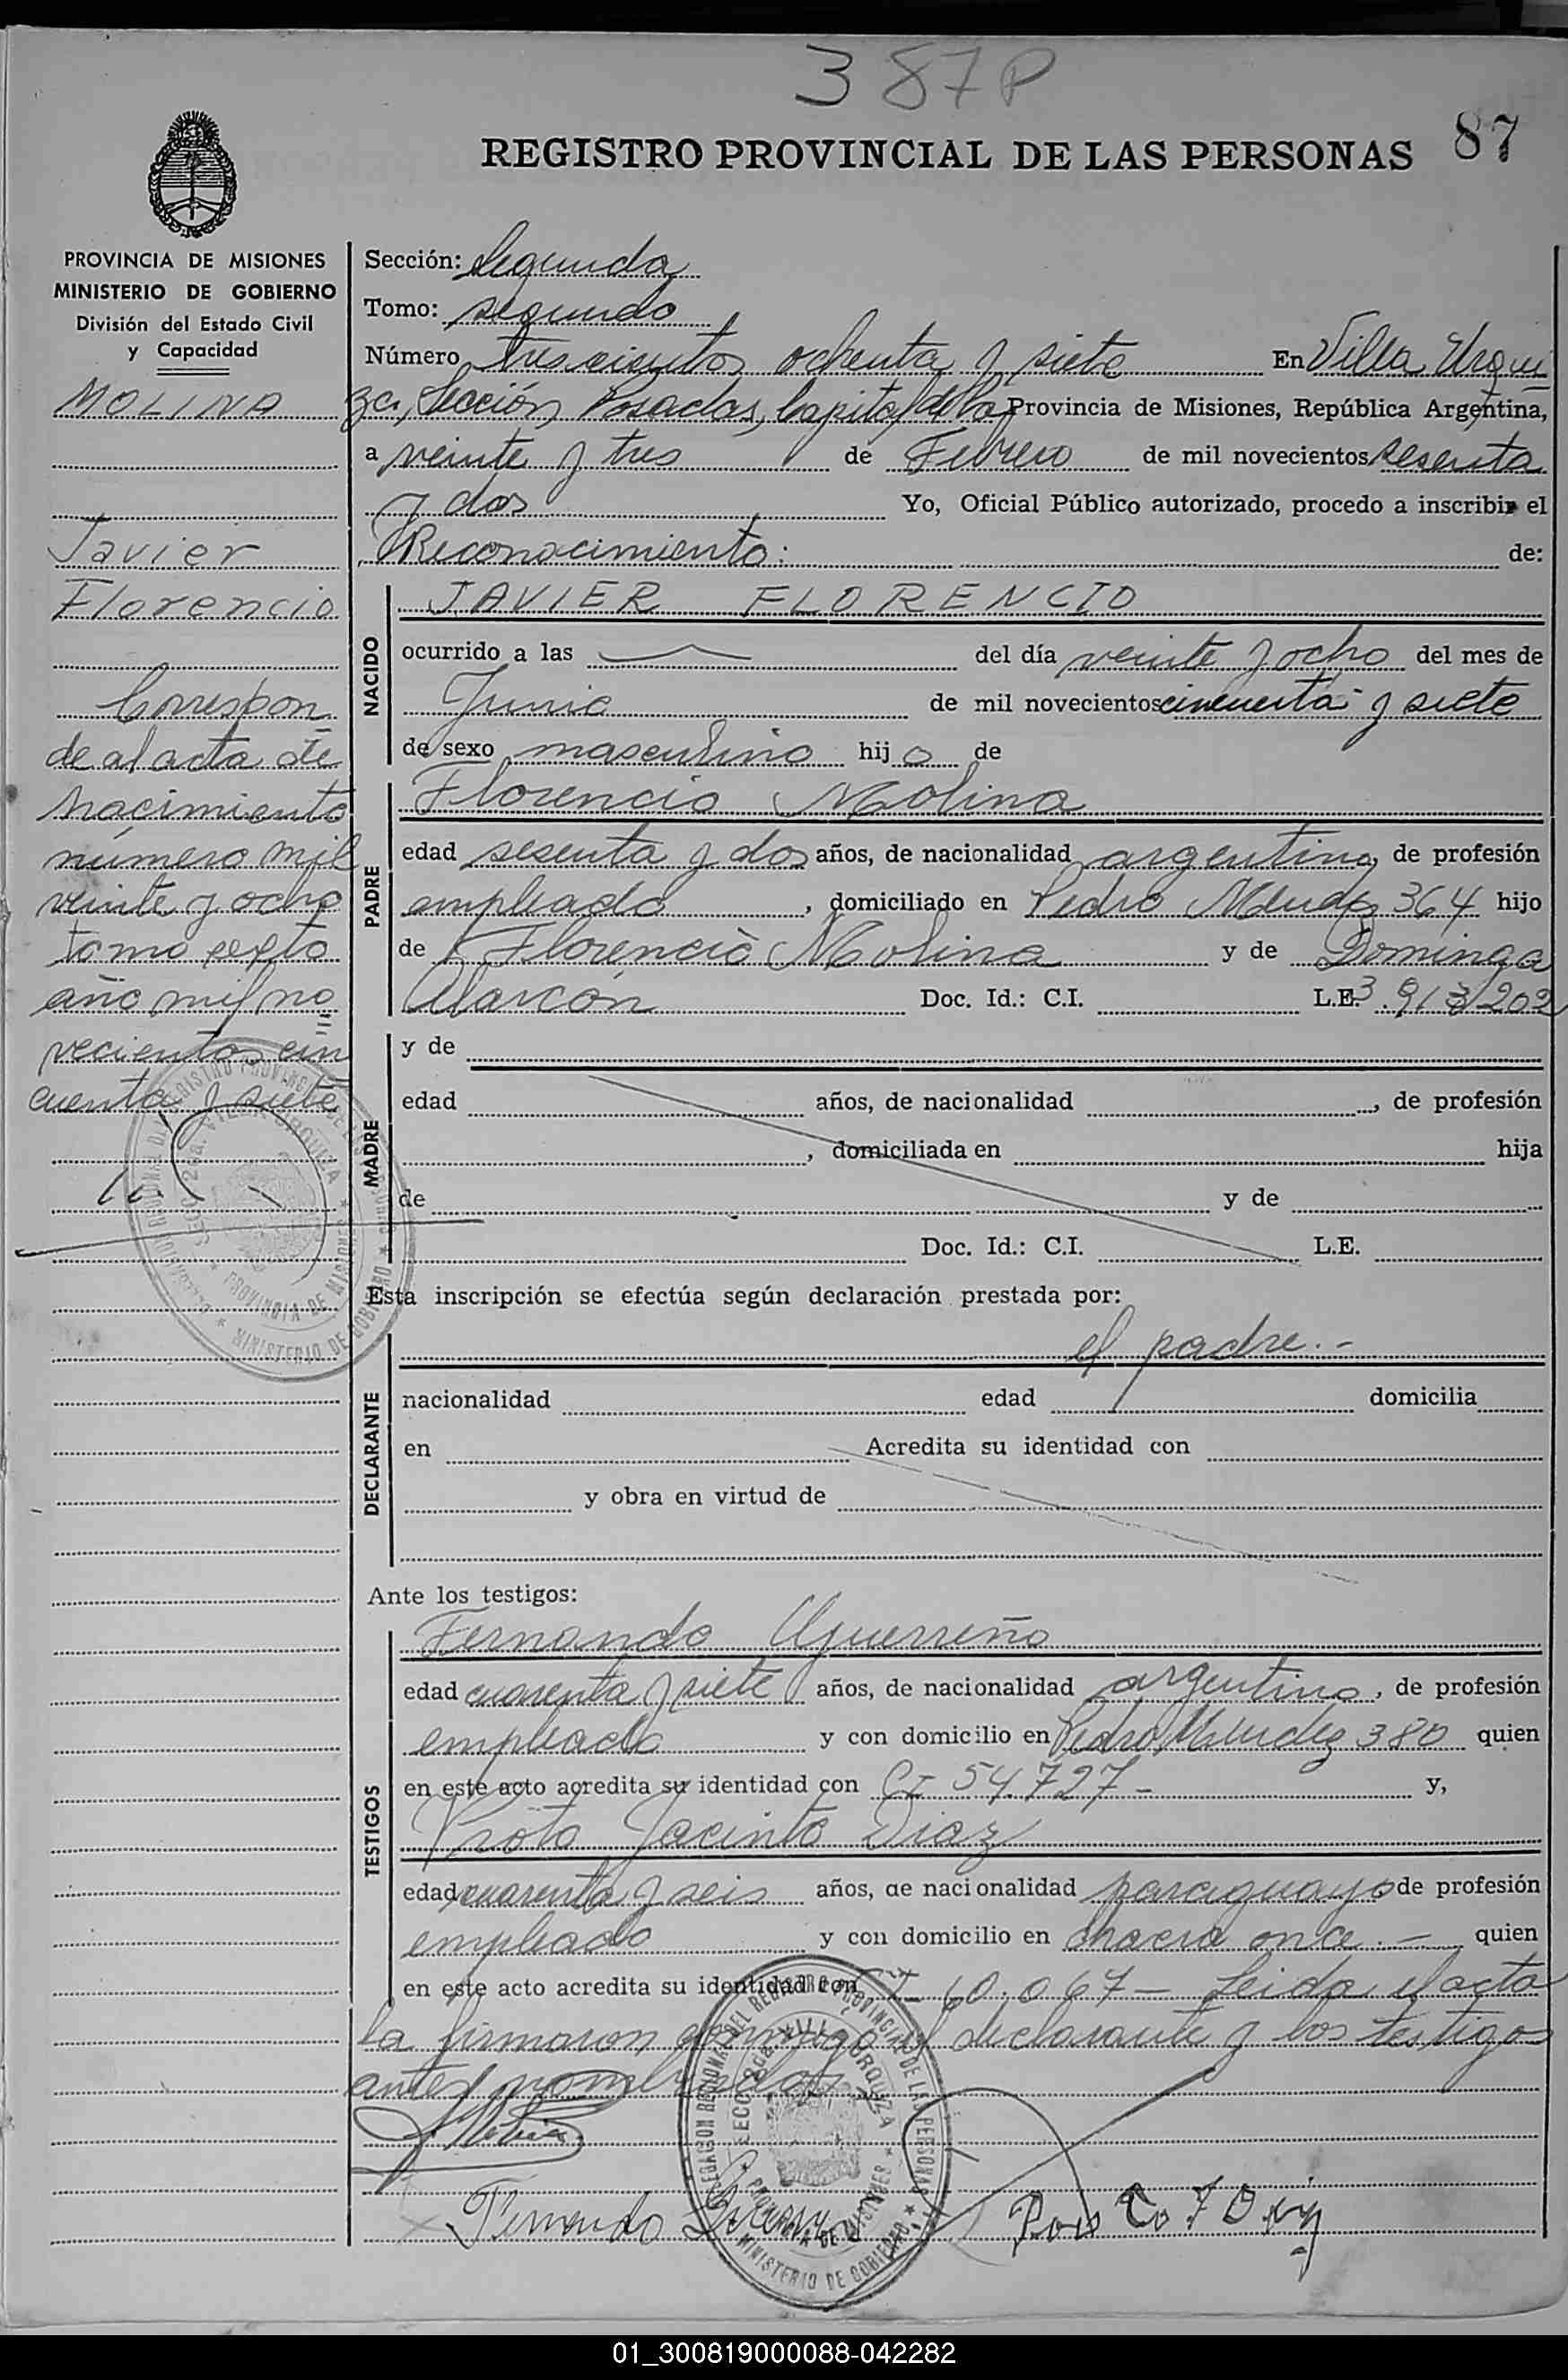 387P
REGISTRO PROVINCIAL DE LAS PERSONAS 87
PROVINCIA DE MISIONES
MINISTERIO DE GOBIERNO
División del Estado Civil
y Capacidad
MOLINA
Javier
Florencio
Correspon
de al acta de
nacimiento
número mil
veinte y ocho
tomo sexto
año mil no
vecientos cin
cuenta y siete
Sección: Segunda
Tomo: segundo
Número trescientos ochenta y siete En Villa Urqui
za, Sección Posadas, Capital de la Provincia de Misiones, República Argentina,
a veinte y tres de Febrero de mil novecientos sesenta
y dos Yo, Oficial Público autorizado, procedo a inscribir el
Reconocimiento: de:
NACIDO
JAVIER FLORENCIO
ocurrido a las del día veinte y ocho del mes de
Junio de mil novecientos cincuenta y siete
de sexo masculino hijo de
PADRE
Florencio Molina
edad sesenta y dos años, de nacionalidad argentina, de profesión
empleado, domiciliado en Pedro Mendez 364 hijo
de Florencio Molina y de Dominga
Alarcón Doc. Id.: C.I. L.E. 3.913.202
MADRE
y de
edad años, de nacionalidad , de profesión
, domiciliada en hija
de y de
Doc. Id.: C.I. L.E.
Esta inscripción se efectúa según declaración prestada por:
el padre.-
DECLARANTE
nacionalidad edad domicilia
en Acredita su identidad con
y obra en virtud de
Ante los testigos:
TESTIGOS
Fernando Aguerreño
edad cuarenta y siete años, de nacionalidad argentino, de profesión
empleado y con domicilio en Pedro Mendez 380 quien
en este acto acredita su identidad con CI 54.727- y,
Proto Jacinto Diaz
edad cuarenta y seis años, de nacionalidad paraguayo de profesión
empleado y con domicilio en chacra once.- quien
en este acto acredita su identidad con CI 60.067- Leida el acta
la firmaron conmigo el declarante y los testigos
antes nombrados
Fernando
DELEGACION REGIONAL DEL REGISTRO PROVINCIAL DE LAS PERSONAS
SECC. 2da. VILLA URQUIZA
PROVINCIA DE MISIONES
MINISTERIO DE GOBIERNO
01_300819000088-042282